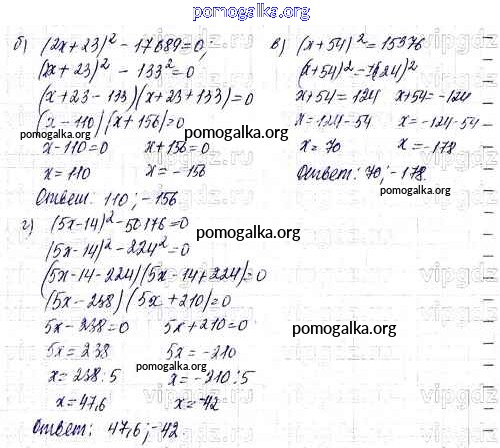 pomogalka.org
б) (2x+23)² - 17689=0;
(2x+23)² - 133²=0
(x+23-133)(x+23+133)=0
(x-110)(x+156)=0
x-110=0 x+156=0
x=110 x=-156
Ответ: 110;-156
в) (x+54)²=15376
(x+54)²=124²
x+54=124 x+54=-124
x=124-54 x=-124-54
x=70 x=-178
Ответ: 70;-178.
pomogalka.org
pomogalka.org
г) (5x-14)²-50176=0
(5x-14)²-224²=0
(5x-14-224)(5x-14+224)=0
(5x-238)(5x+210)=0
5x-238=0 5x+210=0
5x=238 5x=-210
x=238:5 x=-210:5
x=47,6 x=-42
Ответ: 47,6;-42.
pomogalka.org
pomogalka.org
pomogalka.org
pomogalka.org
vipgdz.ru